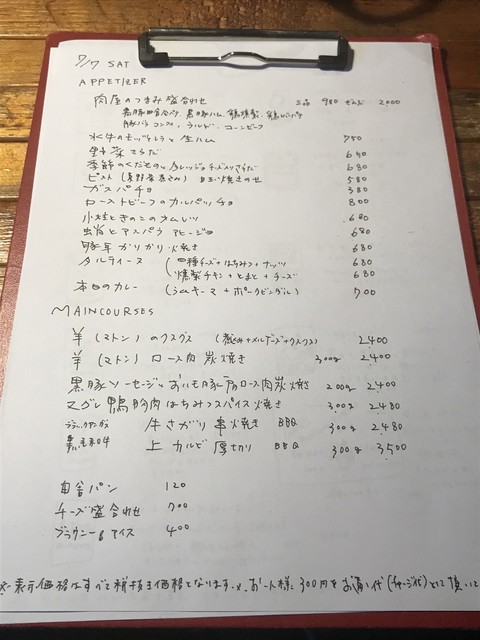 7/7 SAT
APPETIZER
肉屋のつまみ盛合わせ 三品 980 ぜんぶ 2000
黒豚田舎パテ、黒豚ハム、鶏燻製、鶏レバーパテ
豚バラコンフィ、ラルド、コーンビーフ
水牛のモッツァレラと生ハム 750
野菜さらだ 640
季節のくだものとカレッジョチーズ入りさらだ 680
ピスト(長野産長なす) 目玉焼きのせ 580
ガスパチョ 380
ローストビーフのカルパッチョ 800
小柱ときのこのオムレツ 680
アスパラ アヒージョ 680
豚耳カリカリ焼き 680
タルティーヌ (四種チーズ+はちみつ+ナッツ 680
(燻製チキン+とまと+チーズ 680
本日のカレー (ラムキーマ+ポークビンダルー) 700
MAINCOURSES
羊(マトン)のクスクス (煮込み+メルゲーズ+クスクス) 2400
羊(マトン)ロース肉炭焼き 300g 2400
黒豚ソーセージとおいも豚肩ロース肉炭焼き 200g 2400
マグレ鴨胸肉はちみつスパイス焼き 300g 2480
ブラックアンガス 牛さがり串焼き BBQ 300g 2480
黒毛和牛 上カルビ厚切り BBQ 300g 3500
田舎パン 120
チーズ盛合わせ 700
ブラウニー&アイス 400
※表示価格はすべて税抜き価格となります。※お一人様に300円をお通し代(チャージ代)として頂いて